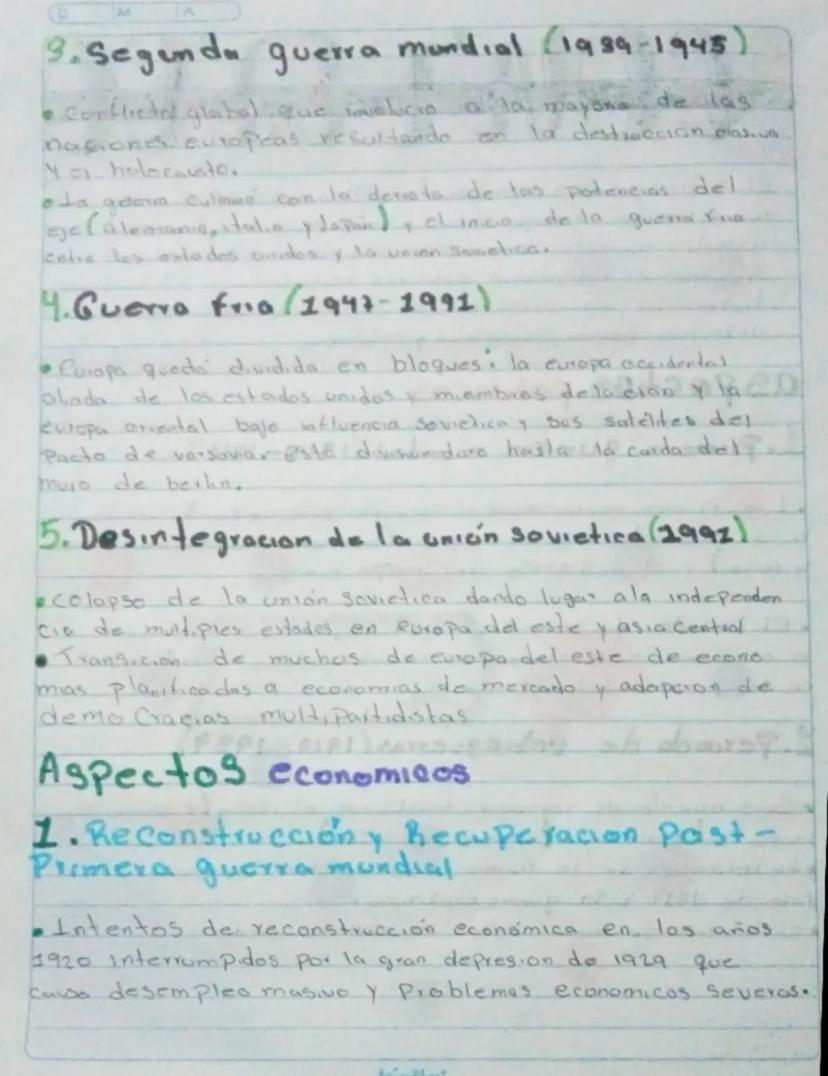 D M A
3. Segunda guerra mundial (1939-1945)
• conflicto global que involucro a la mayoria de las
naciones europeas resultando en la destruccion masiva
y el holocausto.
• La guerra culmino con la derrota de las potencias del
eje (alemania, italia y Japan) y el inicio de la guerra fria
entre los estados unidos y la union sovietica.
4. Guerra fria (1947-1991)
• Europa quedó dividida en bloques: la europa occidental
aliada de los estados unidos y miembros de la otan y la
europa oriental bajo influencia sovietica y sus satélites del
Pacto de varsovia. está division duro hasta la caida del
muro de berlin.
5. Desintegracion de la unión sovietica (1991)
• colapso de la unión sovietica dando lugar ala independen
cia de multiples estados en europa del este y asia central
• Transicion de muchos de europa del este de econo
mias planificadas a economias de mercado y adopcion de
demo cracias multipartidistas
Aspectos economicos
1. Reconstrucción y Recuperacion Post-
Primera guerra mundial
• Intentos de reconstrucción económica en los años
1920 interrumpidos por la gran depresion de 1929 que
causo desempleo masivo y Problemas economicos severos.